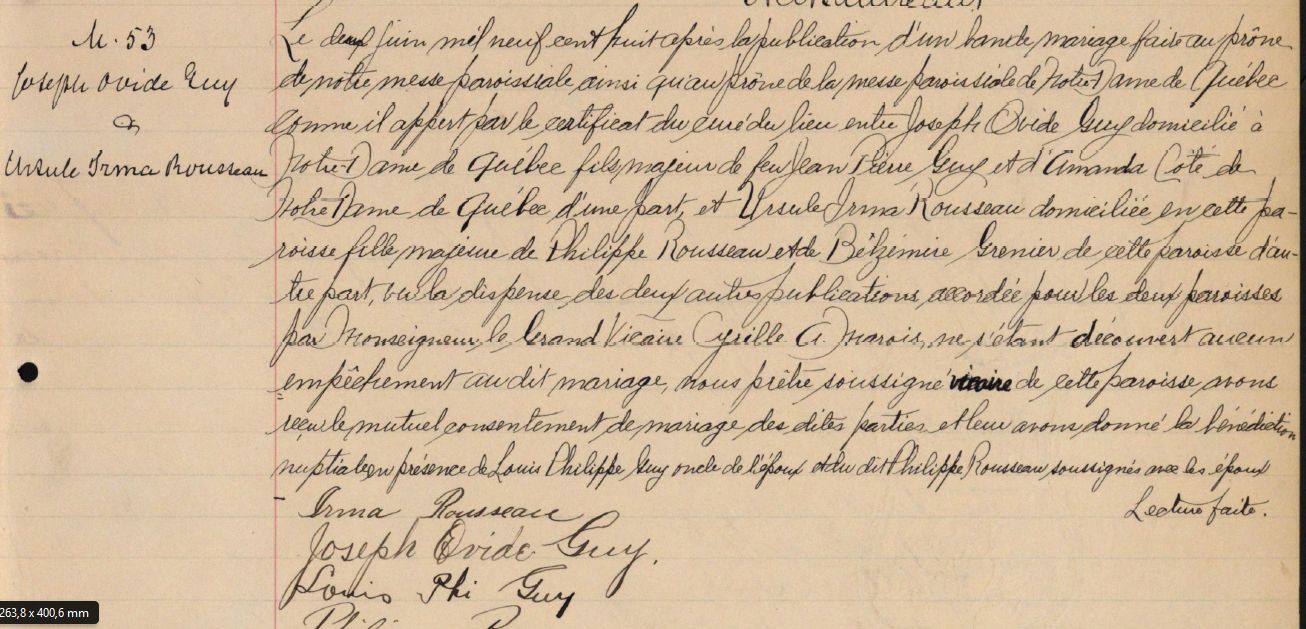 M. 53
Joseph Ovide Guy
&
Ursule Irma Rousseau
Le deux juin mil neuf cent huit après la publication d'un ban de mariage faite au prône
de notre messe paroissiale ainsi qu'au prône de la messe paroissiale de Notre-Dame de Québec
comme il appert par le certificat du curé du lieu entre Joseph Ovide Guy domicilié à
Notre-Dame de Québec fils majeur de feu Jean Pierre Guy et d'Amanda Côté de
Notre Dame de Québec d'une part, et Ursule Irma Rousseau domiciliée en cette pa-
roisse fille majeure de Philippe Rousseau et de Grenier de cette paroisse d'au-
tre part, vu la dispense des deux autres publications accordée pour les deux paroisses
par Monseigneur le Grand Vicaire Cyrille A. Marois, ne s'étant découvert aucun
empêchement au dit mariage, nous prêtre soussigné vicaire de cette paroisse avons
reçu le mutuel consentement de mariage des dites parties et leur avons donné la bénédiction
nuptiale en présence de Louis Philippe Guy oncle de l'époux et du dit Philippe Rousseau soussignés avec les époux
Lecture faite.
Irma Rousseau
Joseph Ovide Guy.
Louis Phi Guy
263,8 x 400,6 mm